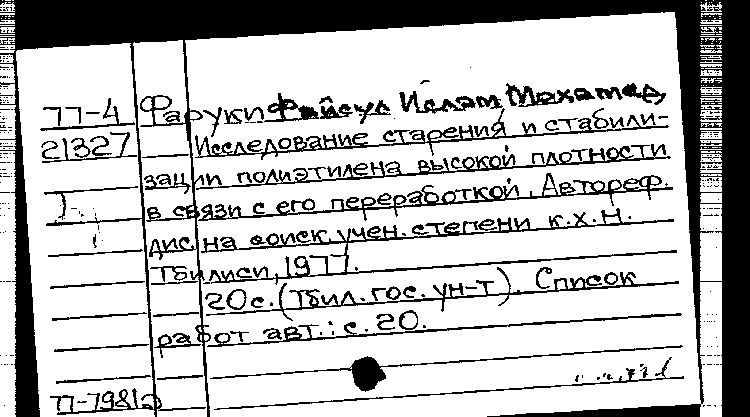 77-4 Фаруки Файсул Ислам Мохамед
21327 Исследование старения и стабили-
зации полиэтилена высокой плотности
в связи с его переработкой. Автореф.
дис. на соиск. учен. степени к.х.н.
Тбилиси, 1977.
20 с. (Тбил. гос. ун-т). Список
работ авт.: с. 20.
77-7981